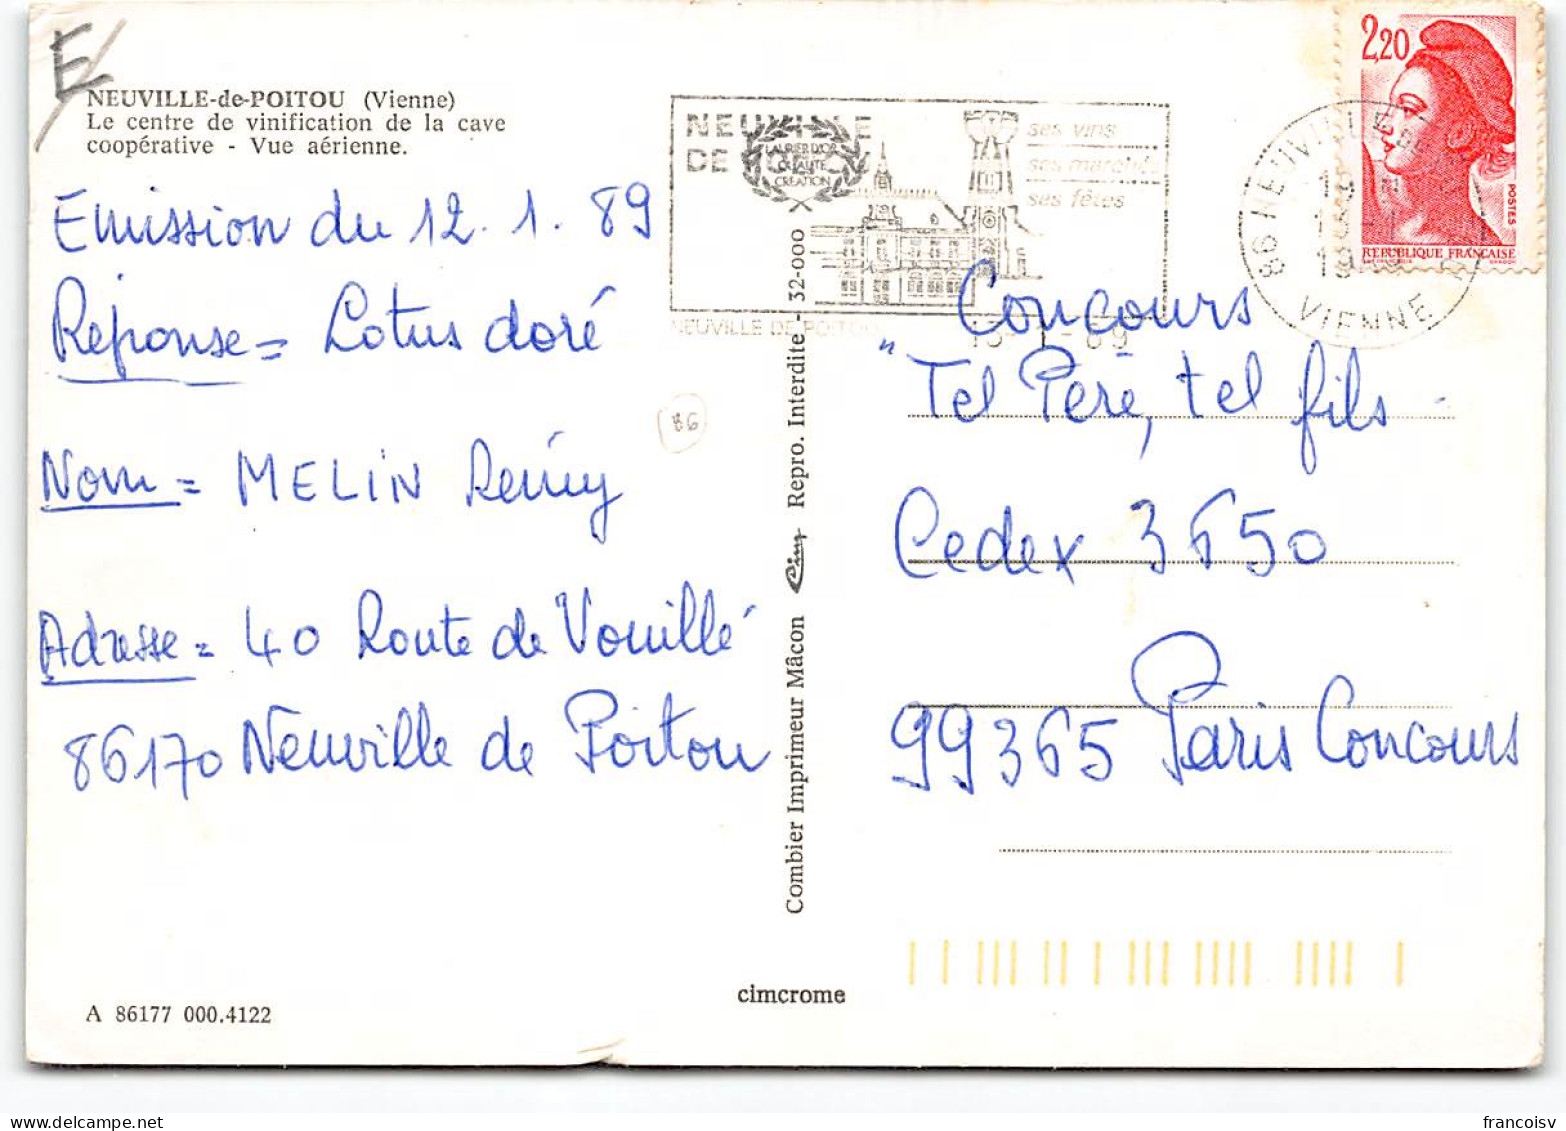 E
NEUVILLE-de-POITOU (Vienne)
Le centre de vinification de la cave
coopérative - Vue aérienne.
Emission du 12.1.89
Réponse = Lotus doré
Nom = MELIN Rémy
Adresse = 40 Route de Vouillé
86170 Neuville de Poitou
86
A 86177 000.4122
cimcrome
Combier Imprimeur Mâcon Cim Repro. Interdite - 32-000
NEUVILLE
DE
LAURIER D'OR
QUALITE
CREATION
ses vins
ses marchés
ses fêtes
NEUVILLE DE POITOU
13-1-89
2,20
POSTES
REPUBLIQUE FRANÇAISE
86 NEUVILLE DE
VIENNE
Concours
"Tel Père, tel fils
Cedex 3650
99365 Paris Concours
francoisv